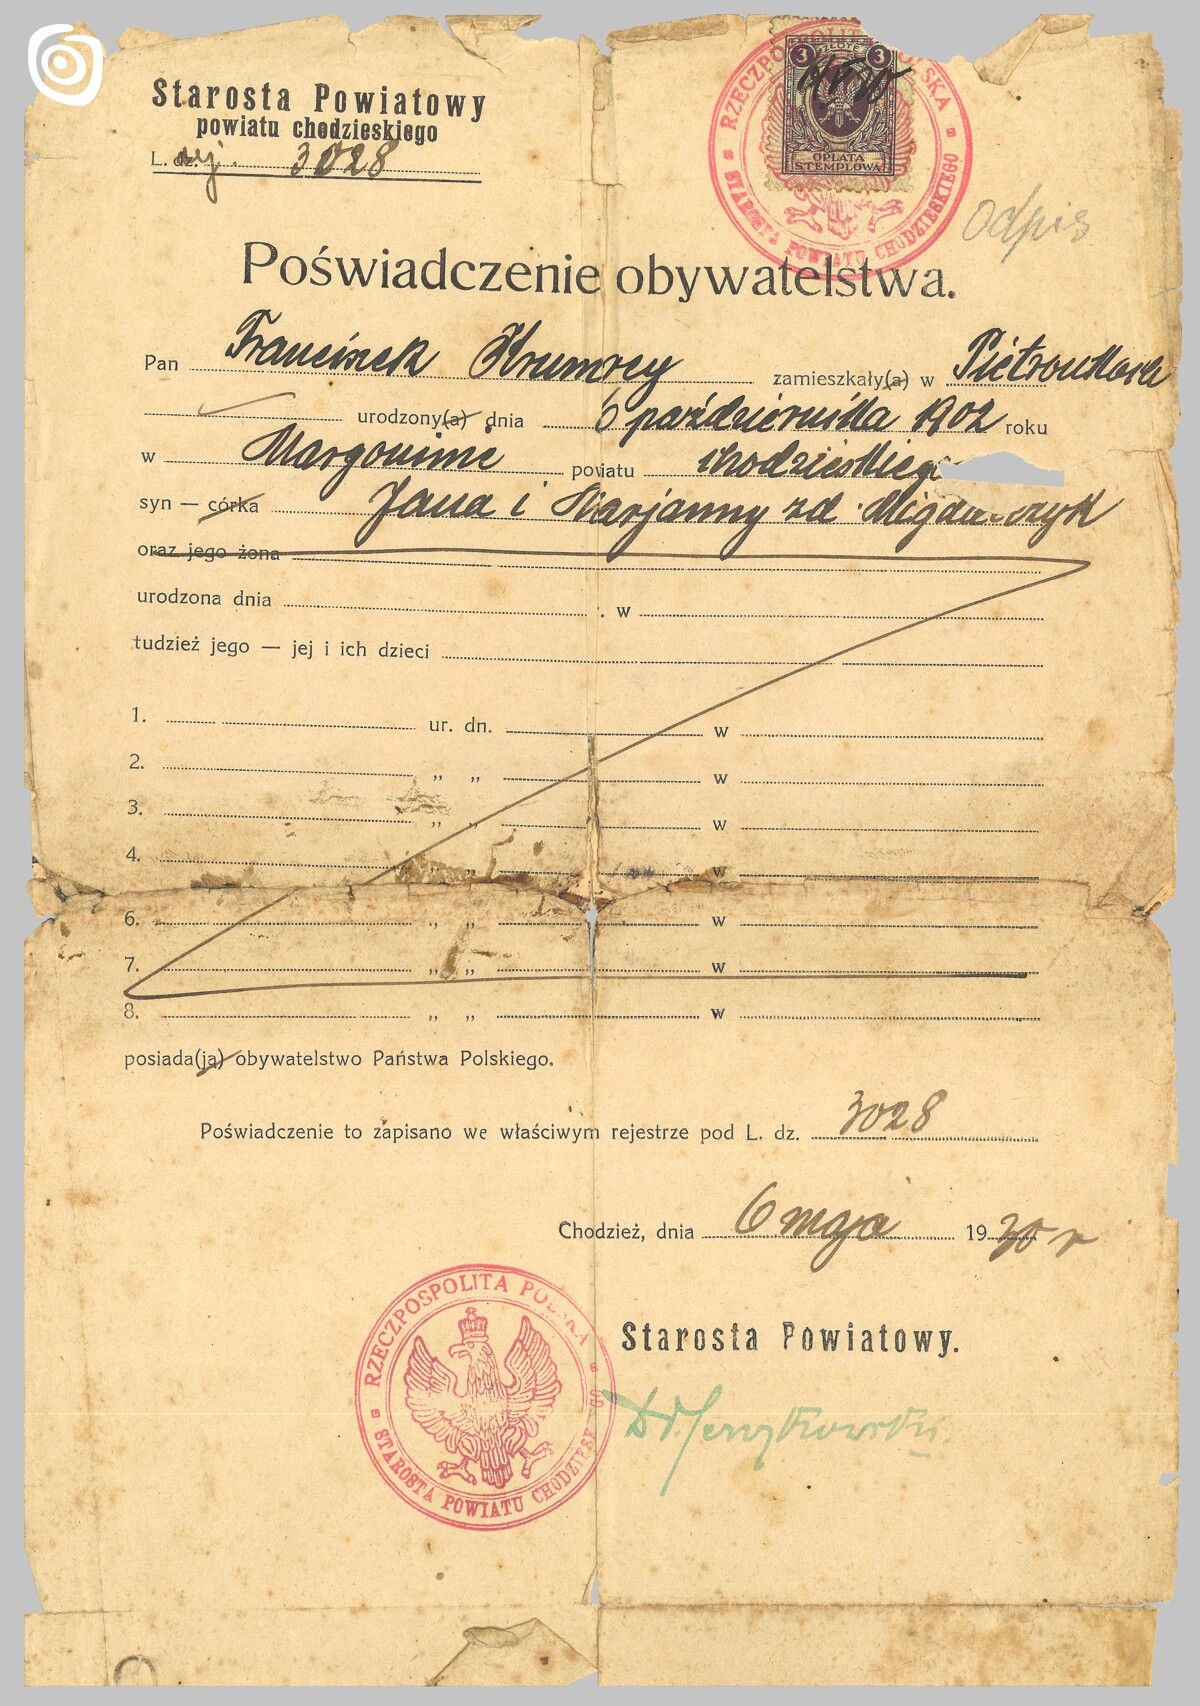 Starosta Powiatowy
powiatu chodzieskiego
L. dz. rej. 3028
RZECZPOSPOLITA POLSKA
STAROSTA POWIATU CHODZIESKIEGO
3 ZŁOTE 3
OPŁATA
STEMPLOWA
Odpis
Poświadczenie obywatelstwa.
Pan Franciszek Krumrey zamieszkały(a) w Pietronkach
urodzony(a) dnia 6 października 1902 roku
w Margoninie powiatu chodzieskiego
syn — córka Jana i Marjanny zd.
oraz jego żona
urodzona dnia w
tudzież jego — jej i ich dzieci
1. ur. dn. w
2. „ „ w
3. „ „ w
4. „ w
6. „ „ w
7. „ „ w
8. „ „ w
posiada(ją) obywatelstwo Państwa Polskiego.
Poświadczenie to zapisano we właściwym rejestrze pod L. dz. 3028
Chodzież, dnia 6 maja 1930 r
RZECZPOSPOLITA POLSKA
STAROSTA POWIATU CHODZIESKIEGO
Starosta Powiatowy.